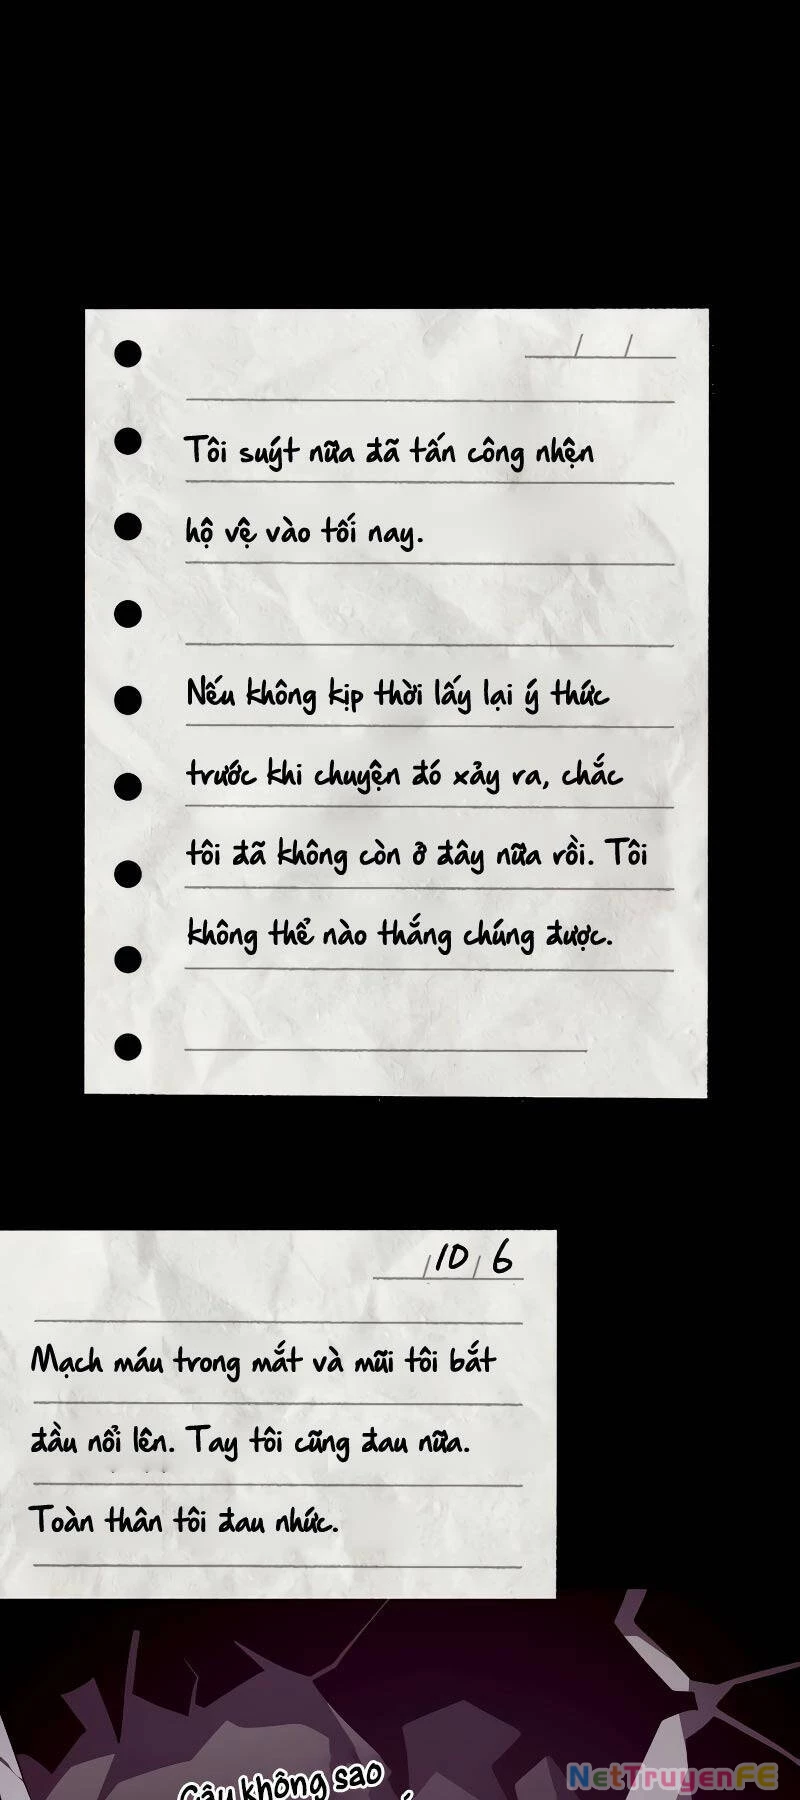 Tôi suýt nữa đã tấn công nhện
hộ vệ vào tối nay.
Nếu không kịp thời lấy lại ý thức
trước khi chuyện đó xảy ra, chắc
tôi đã không còn ở đây nữa rồi. Tôi
không thể nào thắng chúng được.
/10/6
Mạch máu trong mắt và mũi tôi bắt
đầu nổi lên. Tay tôi cũng đau nữa.
Toàn thân tôi đau nhức.
Cậu không sao
NetTruyenFE